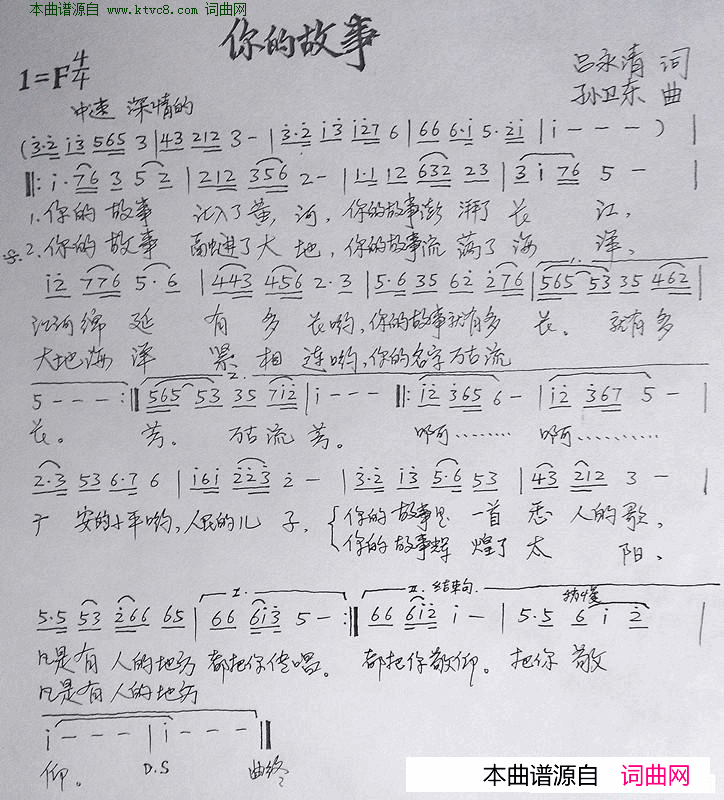 本曲谱源自 www.ktvc8.com 词曲网
你的故事
1=F 4/4
吕永清 词
孙卫东 曲
中速 深情的
(3·2 i3 565 3|43 212 3-|3·2 i3 i27 6|66 6·i 5·2i|i---)|
‖: i·76 3 5 2|212 356 2-|1·1 12 632 23|3 i 76 5-|
1.你的故事 汇入了黄河,你的故事澎湃了长江,
2.你的故事 融进了大地,你的故事流荡了海洋,
i2 776 5·6|443 456 2·3|5·6 35 62 276|565 53 35 462|
江河绵延 有多长哟,你的故事就有多长。就有多
大地海洋 紧相连哟,你的名字万古流
5---:‖565 53 35 7i2|i---‖: i2 365 6-|i2 367 5-|
长。 芳。万古流芳。 啊……… 啊…………
2·3 53 6·7 6|i6i 223 2-|3·2 i3 5·6 53|43 212 3-|
子,你的故事是一首 人的歌,
你的故事辉煌了太阳,
I. II. 结束句
5·5 53 266 65|66 6i3 5-:‖66 6i2 i-|5·5 6 i 2|
凡是有人的地方 都把你传唱。都把你敬仰。把你敬
凡是有人的地方
i---|i---‖
仰。 D.S 曲终
本曲谱源自 词曲网